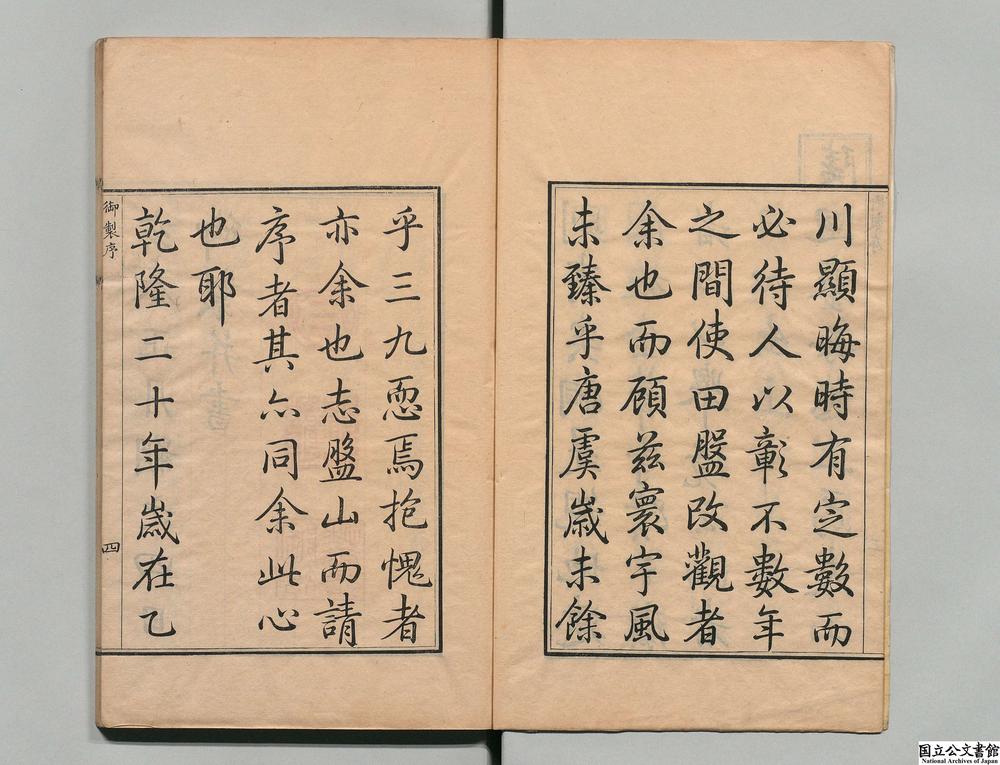 川顯晦時有定數而
必待人以彰不數年
之間使田盤改觀者
余也而顧茲寰宇風
未臻乎唐虞歲未餘
乎三九恧焉抱愧者
亦余也志盤山而請
序者其亦同余此心
也耶
乾隆二十年歲在乙
御製序
四
国立公文書館
National Archives of Japan